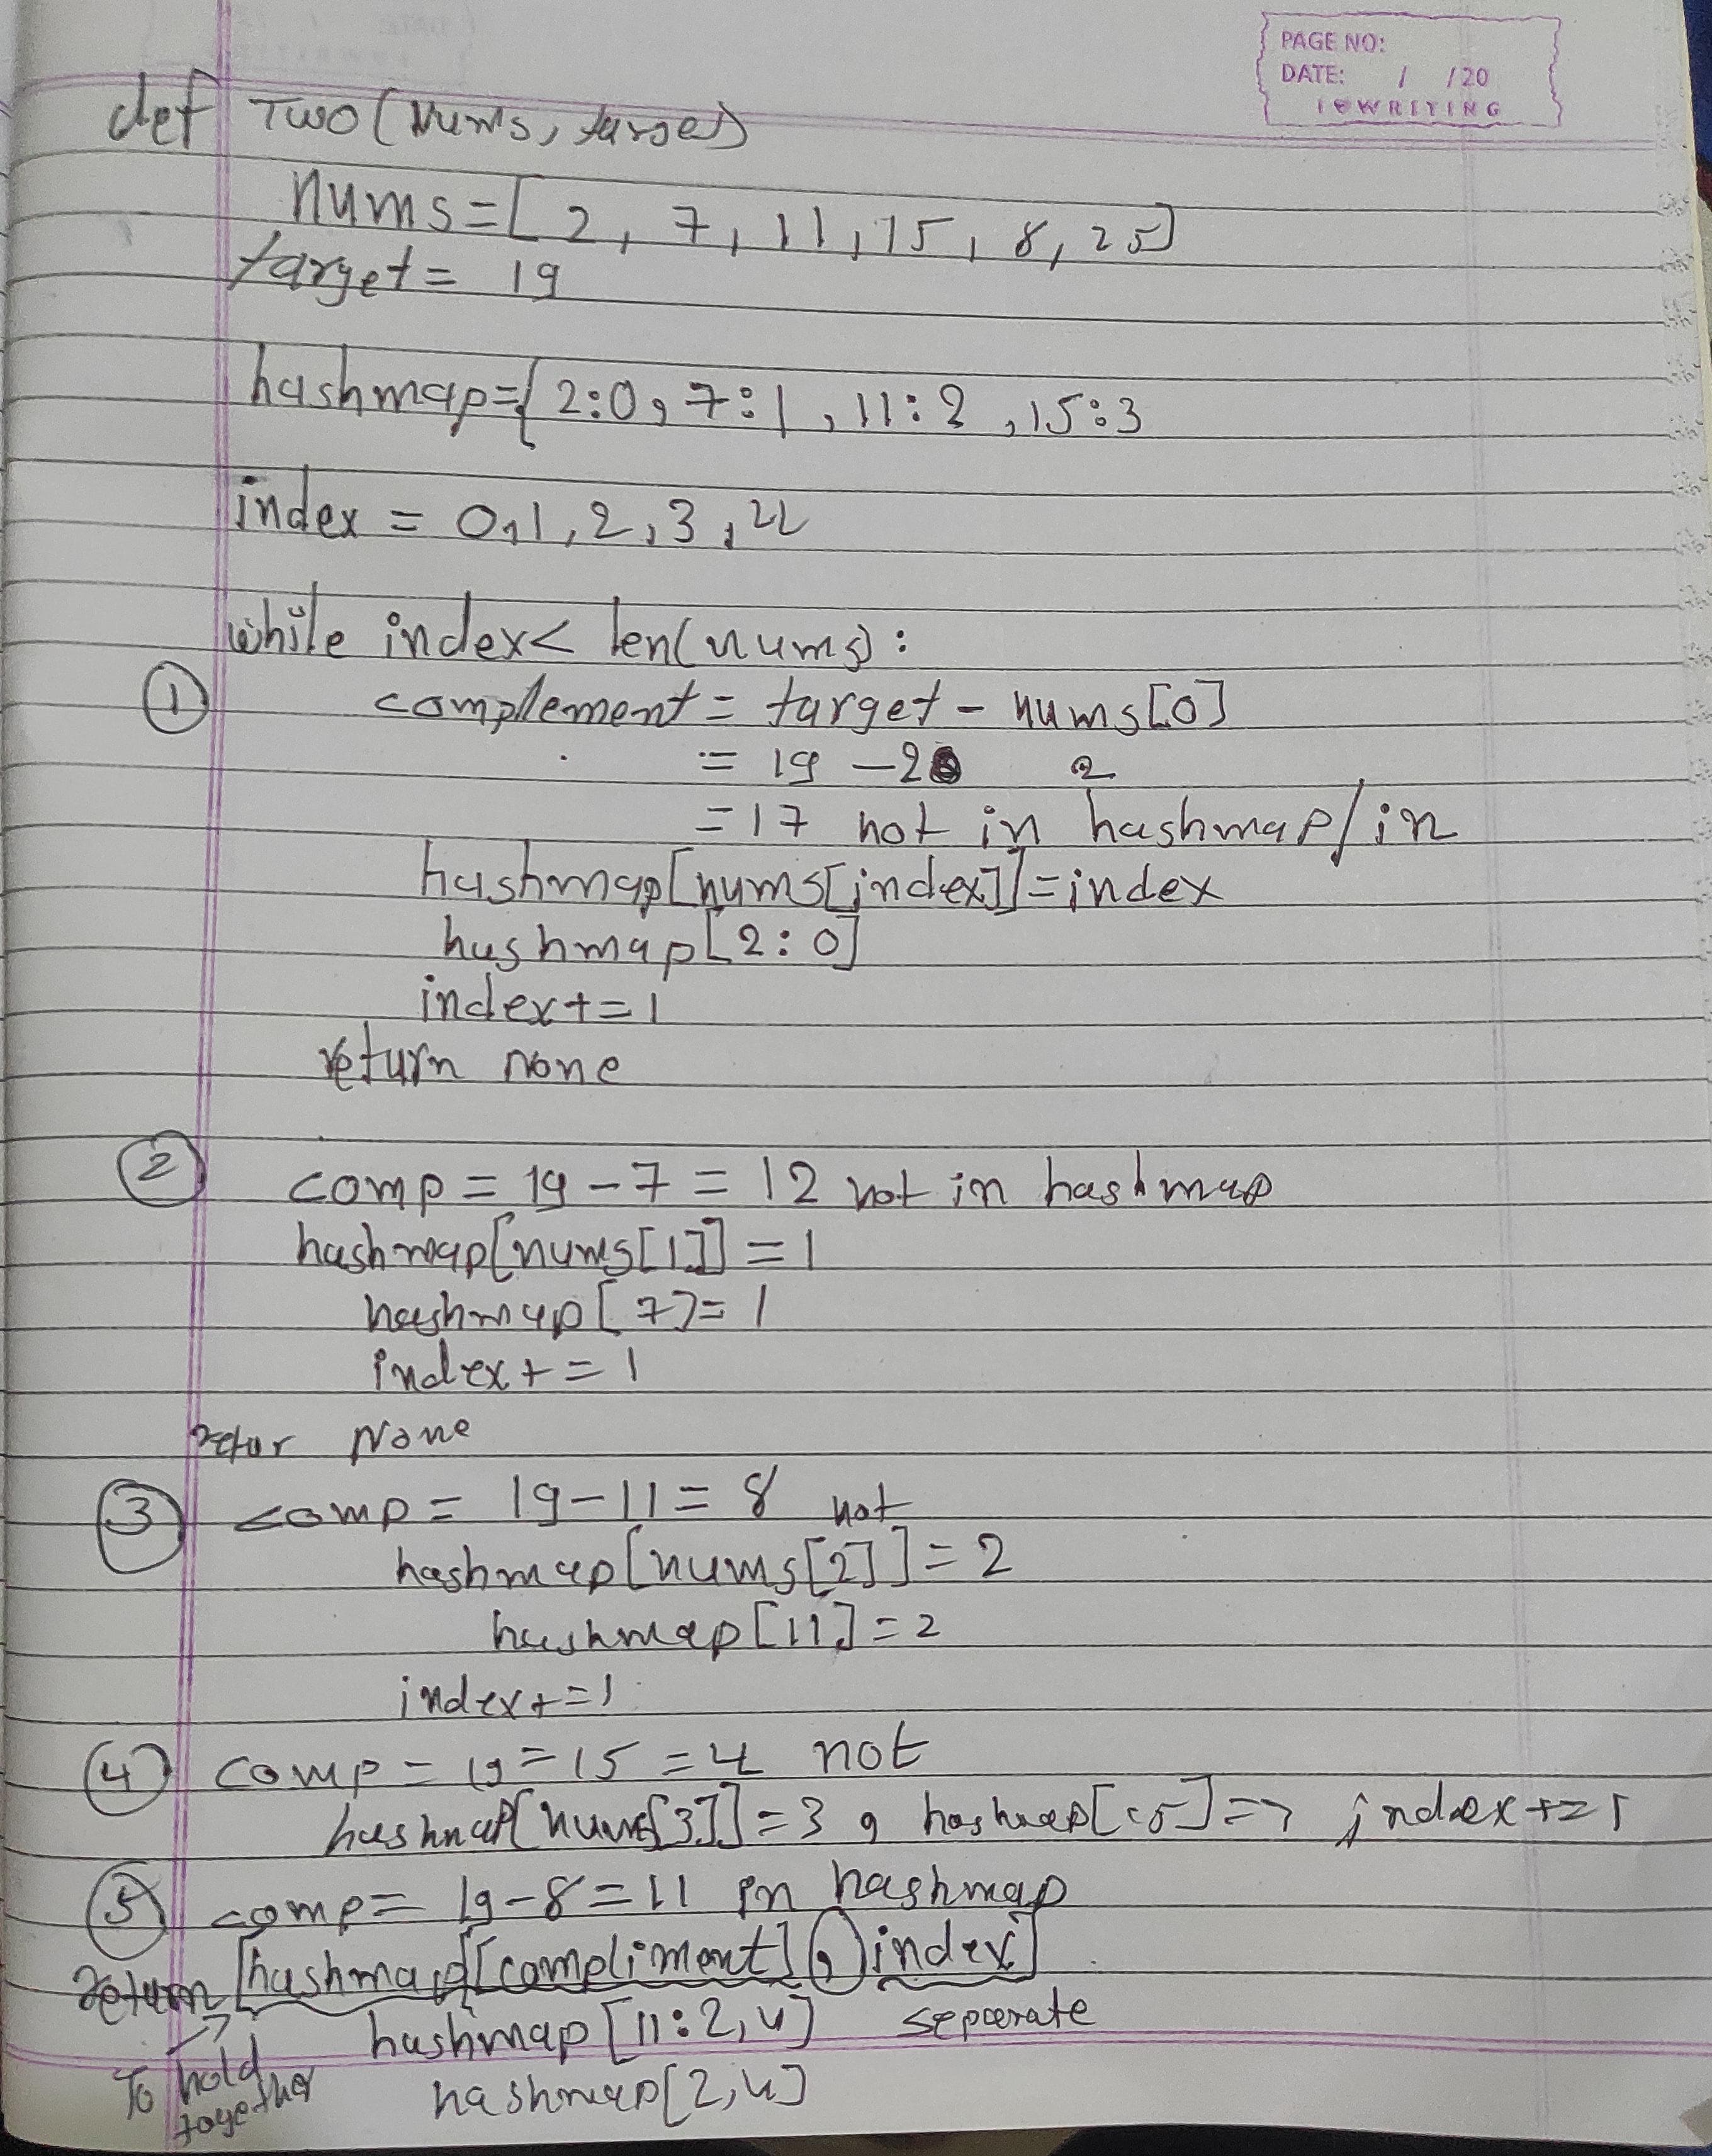 PAGE NO:
DATE: / /20
def Two(Nums, target)
nums=[2, 7, 11, 15, 8, 25]
target= 19
hashmap={2:0, 7:1, 11:2, 15:3
index = 0,1,2,3,4
while index< len(nums):
① complement = target - nums[0]
= 19 -2 2
=17 not in hashmap/in
hashmap[nums[index]]=index
hashmap[2:0]
index+=1
return none
② comp = 19-7 = 12 not in hashmap
hashmap[nums[1]] = 1
hashmap[7]=1
index+=1
retur None
③ comp = 19-11= 8 not
hashmap[nums[2]]=2
hashmap[11]=2
index+=1
④ comp = 19=15=4 not
hashmap[nums[3]]=3, index+=1
⑤ comp= 19-8=11 in hashmap
return [hashmap[compliment], index]
hashmap[11:2,4] separate
To hold together
hashmap[2,4]